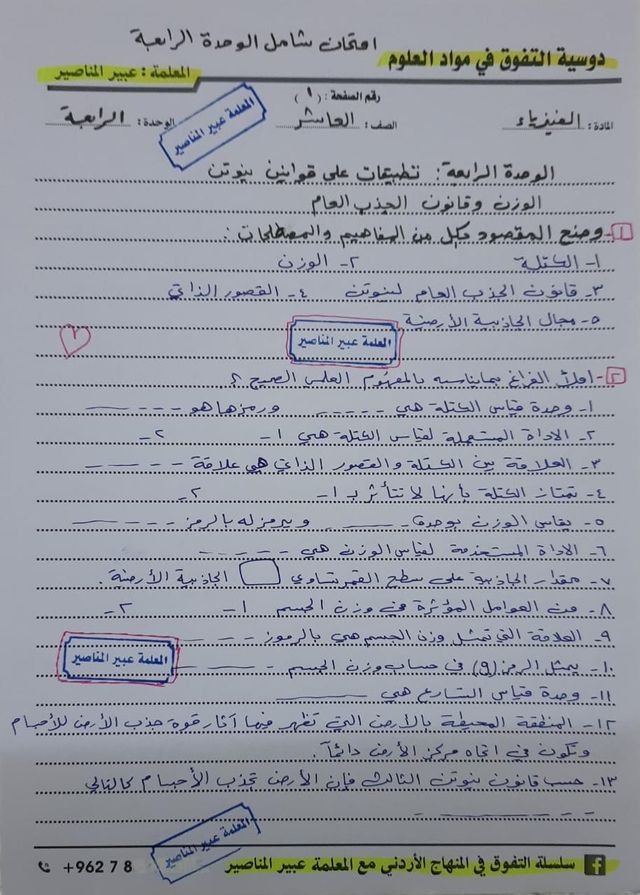 امتحان شامل الوحدة الرابعة
دوسية التفوق في مواد العلوم
المعلمة : عبير المناصير
رقم الصفحة : (١)
المادة : الفيزياء الصف : العاشر الوحدة : الرابعة
المعلمة عبير المناصير
الوحدة الرابعة : تطبيقات على قوانين نيوتن
الوزن وقانون الجذب العام
١- وضح المقصود بكل من المفاهيم والمصطلحات :
١- الكتلة ٢- الوزن
٣- قانون الجذب العام لنيوتن ٤- القصور الذاتي
٥- مجال الجاذبية الأرضية
المعلمة عبير المناصير
٢- املأ الفراغ بما يناسبه بالمفهوم العلمي الصحيح ؟
١- وحدة قياس الكتلة هي ----- ورمزها هو -----
٢- الاداة المستعملة لقياس الكتلة هي ١- ٢-
٣- العلاقة بين الكتلة والقصور الذاتي هي علاقة -----
٤- تمتاز الكتلة بأنها لا تتأثر بـ ١- ٢-
٥- يقاس الوزن بوحدة ----- ويرمز له بالرمز -----
٦- الاداة المستخدمة لقياس الوزن هي -----
٧- مقدار الجاذبية على سطح القمر تساوي الجاذبية الأرضية .
٨- من العوامل المؤثرة في وزن الجسم ١- ٢-
٩- العلاقة التي تمثل وزن الجسم هي بالرموز -----
المعلمة عبير المناصير
١٠- يمثل الرمز (g) في حساب وزن الجسم -----
١١- وحدة قياس التسارع هي -----
١٢- المنطقة المحيطة بالارض التي تظهر فيها آثار قوة جذب الأرض للأجسام
وتكون في اتجاه مركز الأرض دائماً .
١٣- حسب قانون نيوتن الثالث فإن الأرض تجذب الأجسام كالتالي
-----
المعلمة عبير المناصير
سلسلة التفوق في المنهاج الأردني مع المعلمة عبير المناصير
+962 7 8